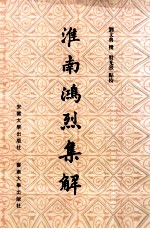 劉文典 撰 殷光熹 點校
淮南鴻烈集解
安徽大學出版社
雲南大學出版社